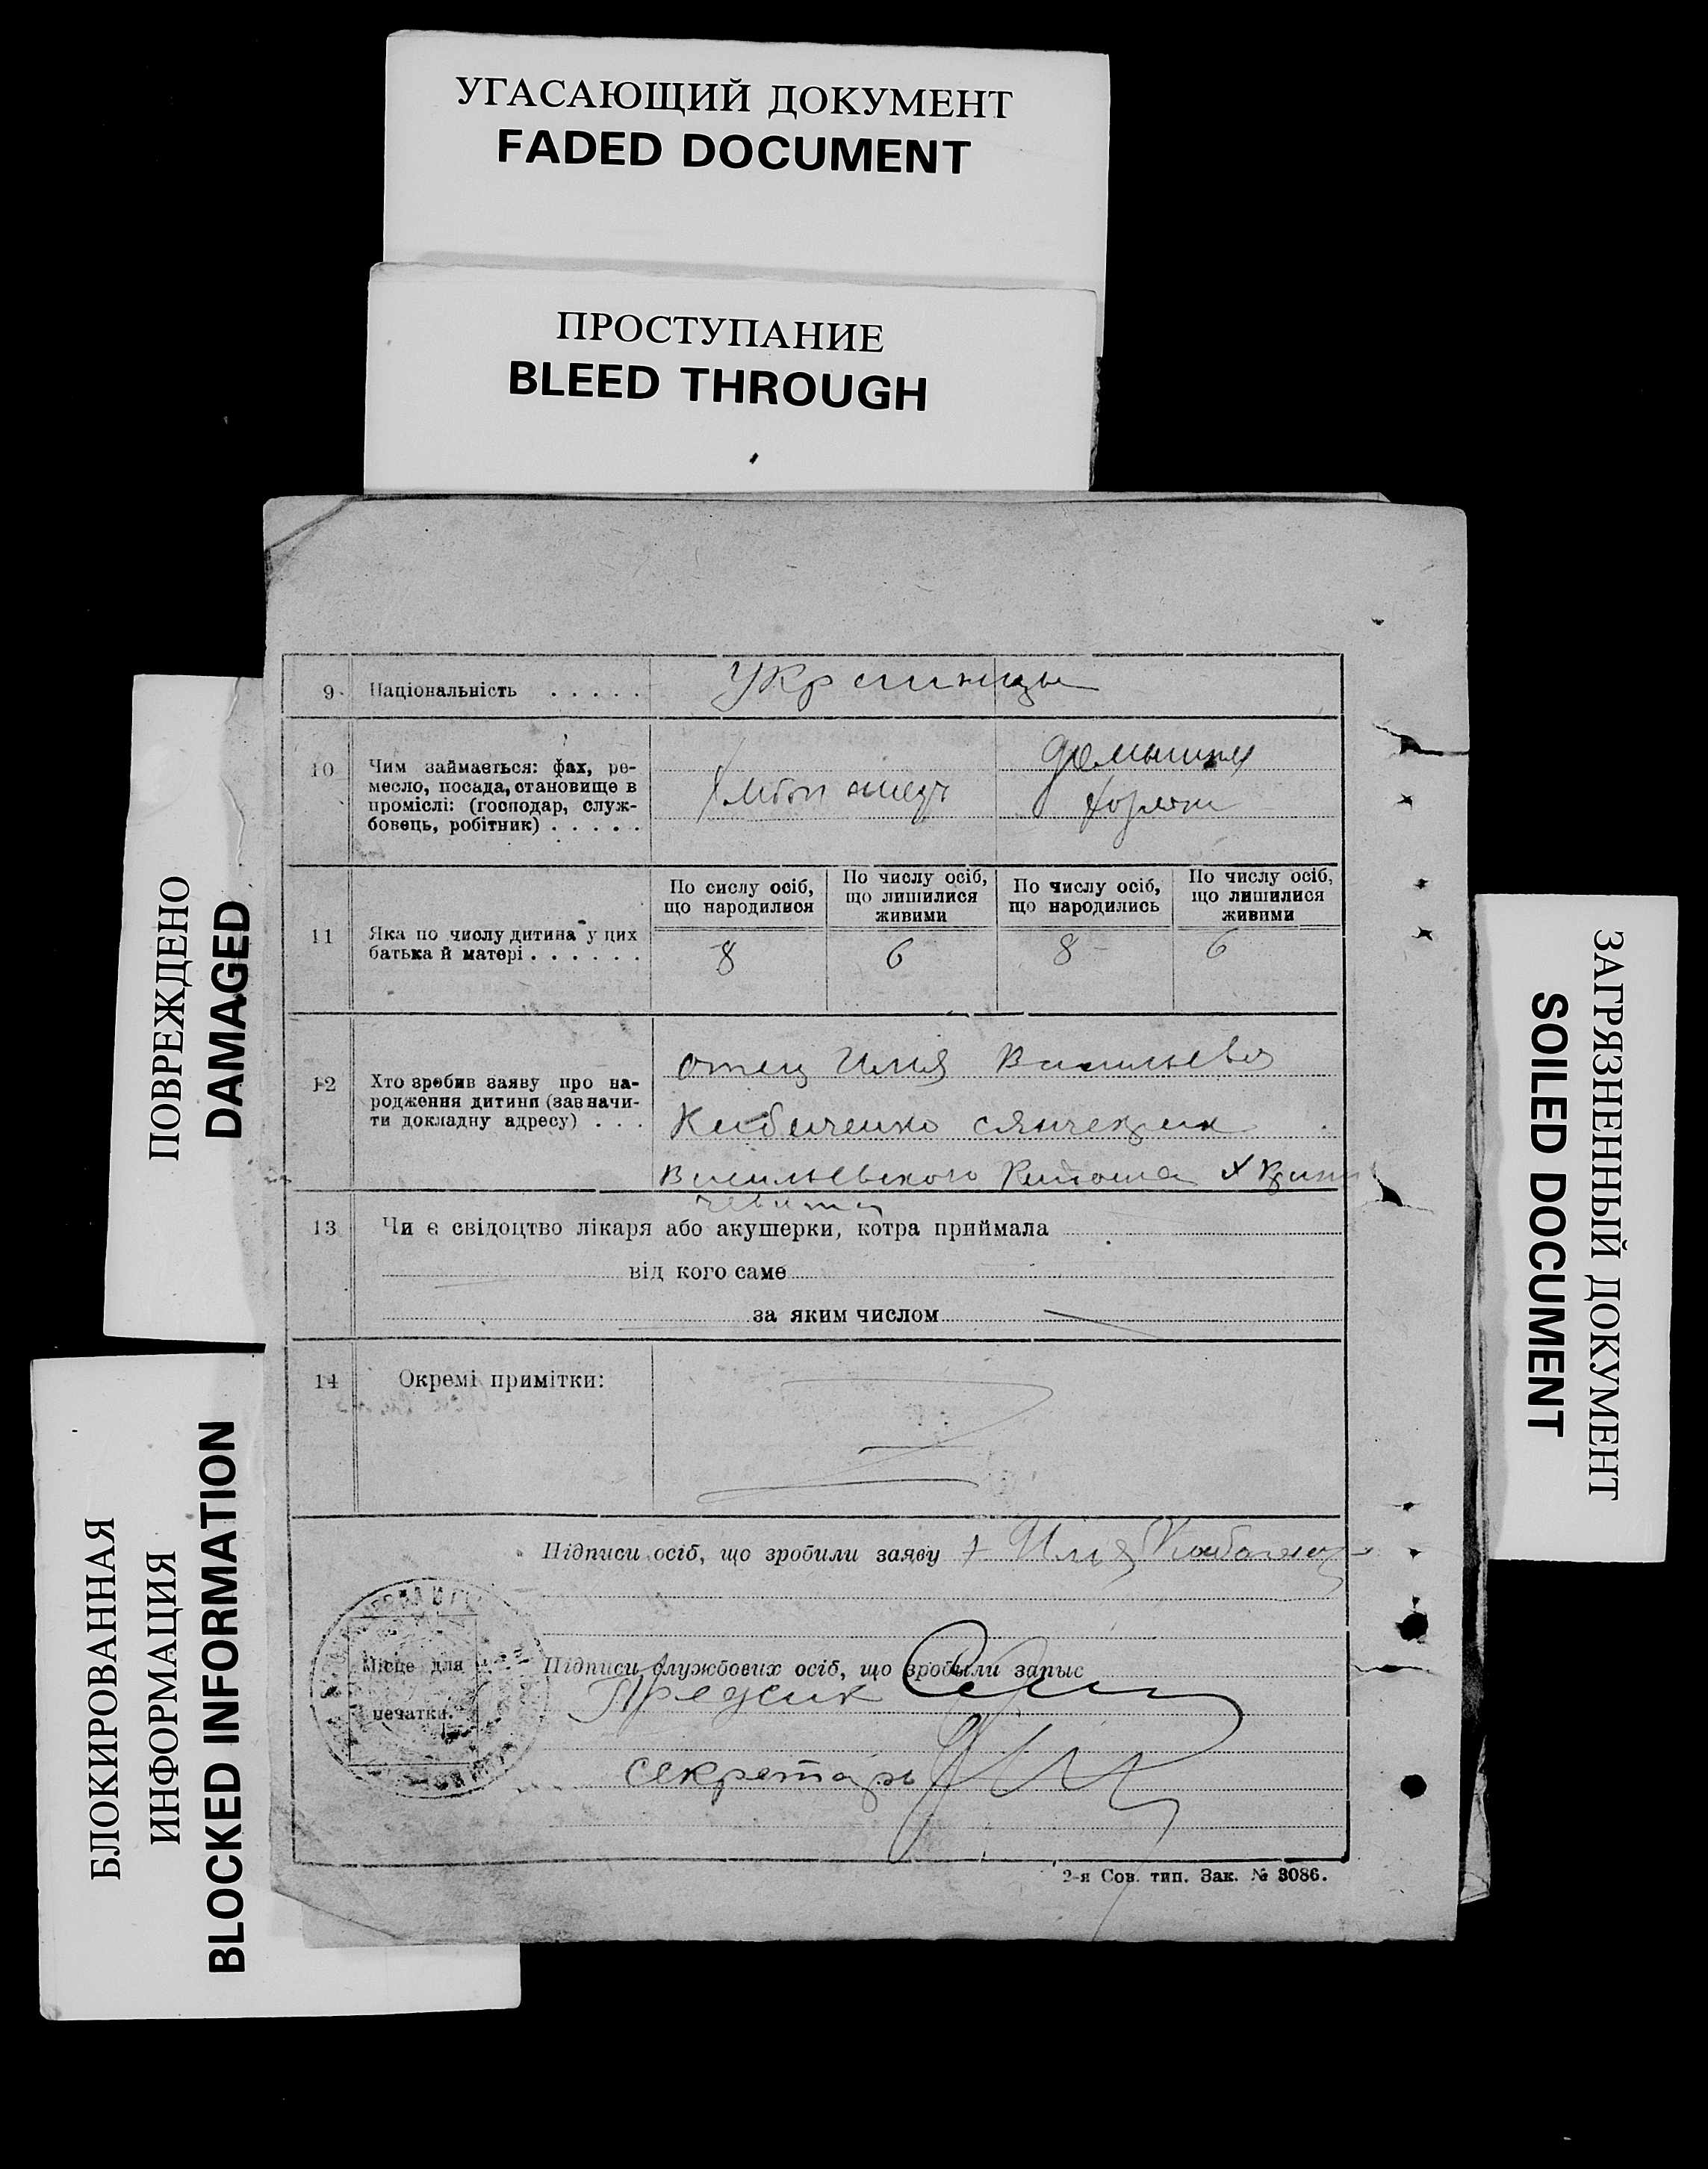 УГАСАЮЩИЙ ДОКУМЕНТ
FADED DOCUMENT
ПРОСТУПАНИЕ
BLEED THROUGH
ПОВРЕЖДЕНО
DAMAGED
БЛОКИРОВАННАЯ
ИНФОРМАЦИЯ
BLOCKED INFORMATION
ЗАГРЯЗНЕННЫЙ ДОКУМЕНТ
SOILED DOCUMENT
9 Національність . . . . .
Украинцы
10 Чим займається: фах, ре-
месло, посада, становище в
проміслі: (господар, служ-
бовець, робітник) . . . . .
Хлебопашец
домашняя
11 Яка по числу дитина у цих
батька й матері . . . . . .
По сислу осіб,
що народилися
По числу осіб,
що лишилися
живими
По числу осіб,
що народились
По числу осіб,
що лишилися
живими
8 6 8 6
12 Хто зробив заяву про на-
родження дитини (зазначи-
ти докладну адресу) . . .
отец Илия
Васильевского Района
13 Чи є свідоцтво лікаря або акушерки, котра приймала
від кого саме
за яким числом
14 Окремі примітки:
Підписи осіб, що зробили заяву
Илия
Місце для
печатки.
Підписи службових осіб, що зробыли запыс
секретарь
2-я Сов. тип. Зак. № 3086.